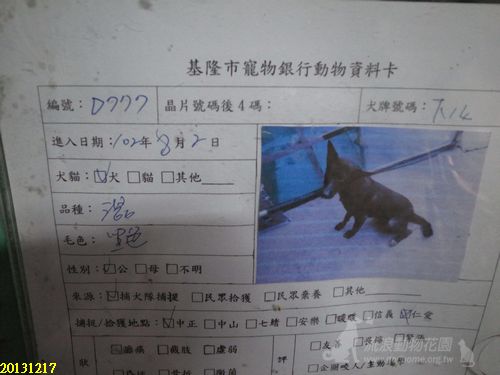 基隆市寵物銀行動物資料卡
編號：D777 晶片號碼後4碼： 犬牌號碼：
進入日期：102年8月2日
犬貓：☑犬 □貓 □其他
品種：混
毛色：黑色
性別：☑公 □母 □不明
來源：☑捕犬隊捕捉 □民眾拾獲 □民眾棄養 □其他
捕捉/拾獲地點：☑中正 □中山 □七堵 □安樂 □暖暖 □信義 ☑仁愛
狀 □ 癲病 □截肢 □虛弱 評 □友善 □長條 □緊張
□企圖咬人/主動攻擊
流浪動物花園
www.doghome.org.tw
20131217